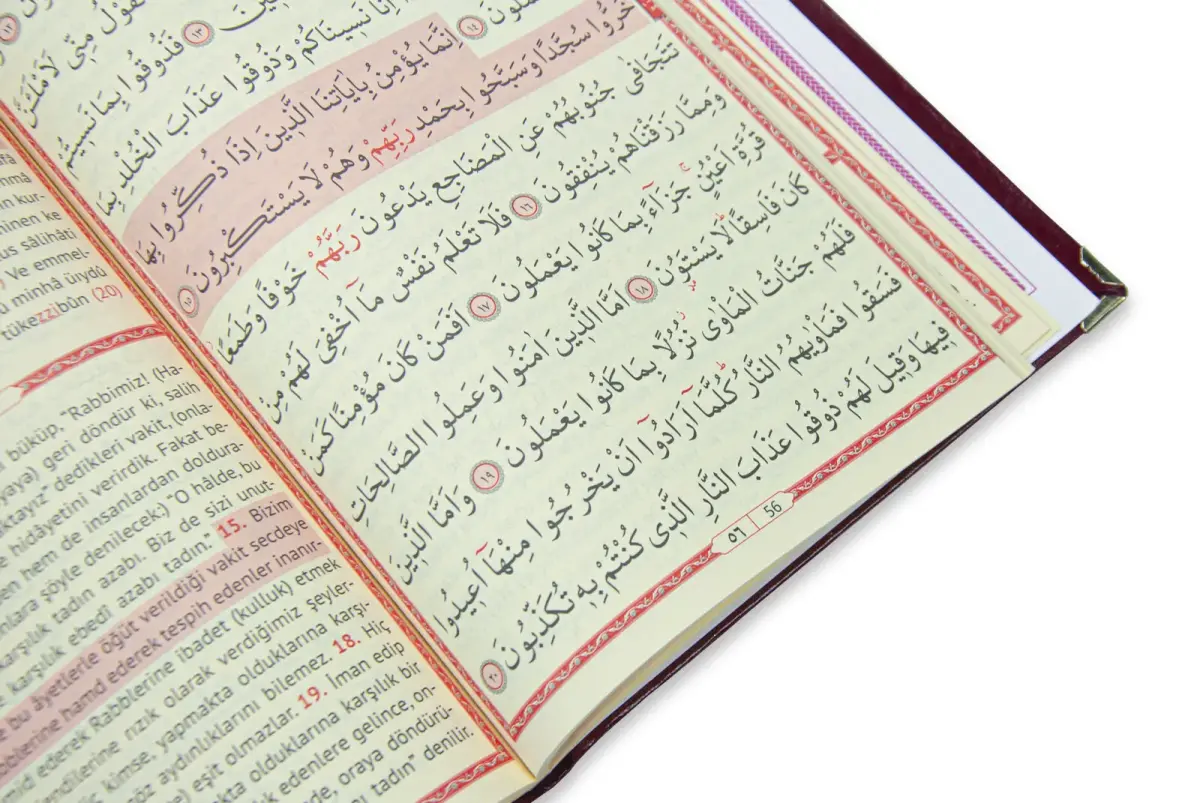 قُولُ مِنّٖى لَاَمْلَـَٔنَّ
فَذُوقُوا بِمَا نَسٖيتُمْ ١٣
اِنَّا نَسٖينَاكُمْ وَذُوقُوا عَذَابَ الْخُلْدِ بِمَا
١٤ اِنَّمَا يُؤْمِنُ بِاٰيَاتِنَا الَّذٖينَ اِذَا ذُكِّرُوا بِهَا
خَرُّوا سُجَّدًا وَسَبَّحُوا بِحَمْدِ رَبِّهِمْ وَهُمْ لَا يَسْتَكْبِرُونَ ١٥
تَتَجَافٰى جُنُوبُهُمْ عَنِ الْمَضَاجِعِ يَدْعُونَ رَبَّهُمْ خَوْفًا وَطَمَعًا
وَمِمَّا رَزَقْنَاهُمْ يُنْفِقُونَ ١٦ فَلَا تَعْلَمُ نَفْسٌ مَٓا اُخْفِىَ لَهُمْ مِنْ
قُرَّةِ اَعْيُنٍ جَزَٓاءً بِمَا كَانُوا يَعْمَلُونَ ١٧ اَفَمَنْ كَانَ مُؤْمِنًا كَمَنْ
كَانَ فَاسِقًا لَا يَسْتَوُ۫نَ ١٨ اَمَّا الَّذٖينَ اٰمَنُوا وَعَمِلُوا الصَّالِحَاتِ
فَلَهُمْ جَنَّاتُ الْمَاْوٰى نُزُلًا بِمَا كَانُوا يَعْمَلُونَ ١٩ وَاَمَّا الَّذٖينَ
فَسَقُوا فَمَاْوٰيهُمُ النَّارُ كُلَّمَٓا اَرَادُٓوا اَنْ يَخْرُجُوا مِنْهَٓا اُعٖيدُوا
فٖيهَا وَقٖيلَ لَهُمْ ذُوقُوا عَذَابَ النَّارِ الَّذٖى كُنْتُمْ بِهٖ تُكَذِّبُونَ ٢٠
٥٦ 56
in kur-
minen ke
us sâlihâti
Ve emmel-
û minhâ üıydû
tükezzibûn (20)
büküp, "Rabbimiz! (Ha-
yaya) geri döndür ki, salih
ktayız" dedikleri vakit, (onla-
e hidâyetini verirdik. Fakat be-
en hem de insanlardan doldura-
nlara şöyle denilecek:) "O hâlde, bu
karşılık tadın azabı. Biz de sizi unut-
karşılık ebedî azabı tadın." 15. Bizim
bu âyetlerle öğüt verildiği vakit secdeye
blerine hamd ederek tespih edenler inanır-
mid ederek Rabblerine ibadet (kulluk) etmek
endilerine rızık olarak verdiğimiz şeyler-
hiç kimse, yapmakta olduklarına karşı-
göz aydınlıklarını bilemez. 18. Hiç
eşit olmazlar. 19. İman edip
akta olduklarına karşılık bir
k edenlere gelince, on-
de, oraya döndürü-
tadın" denilir.